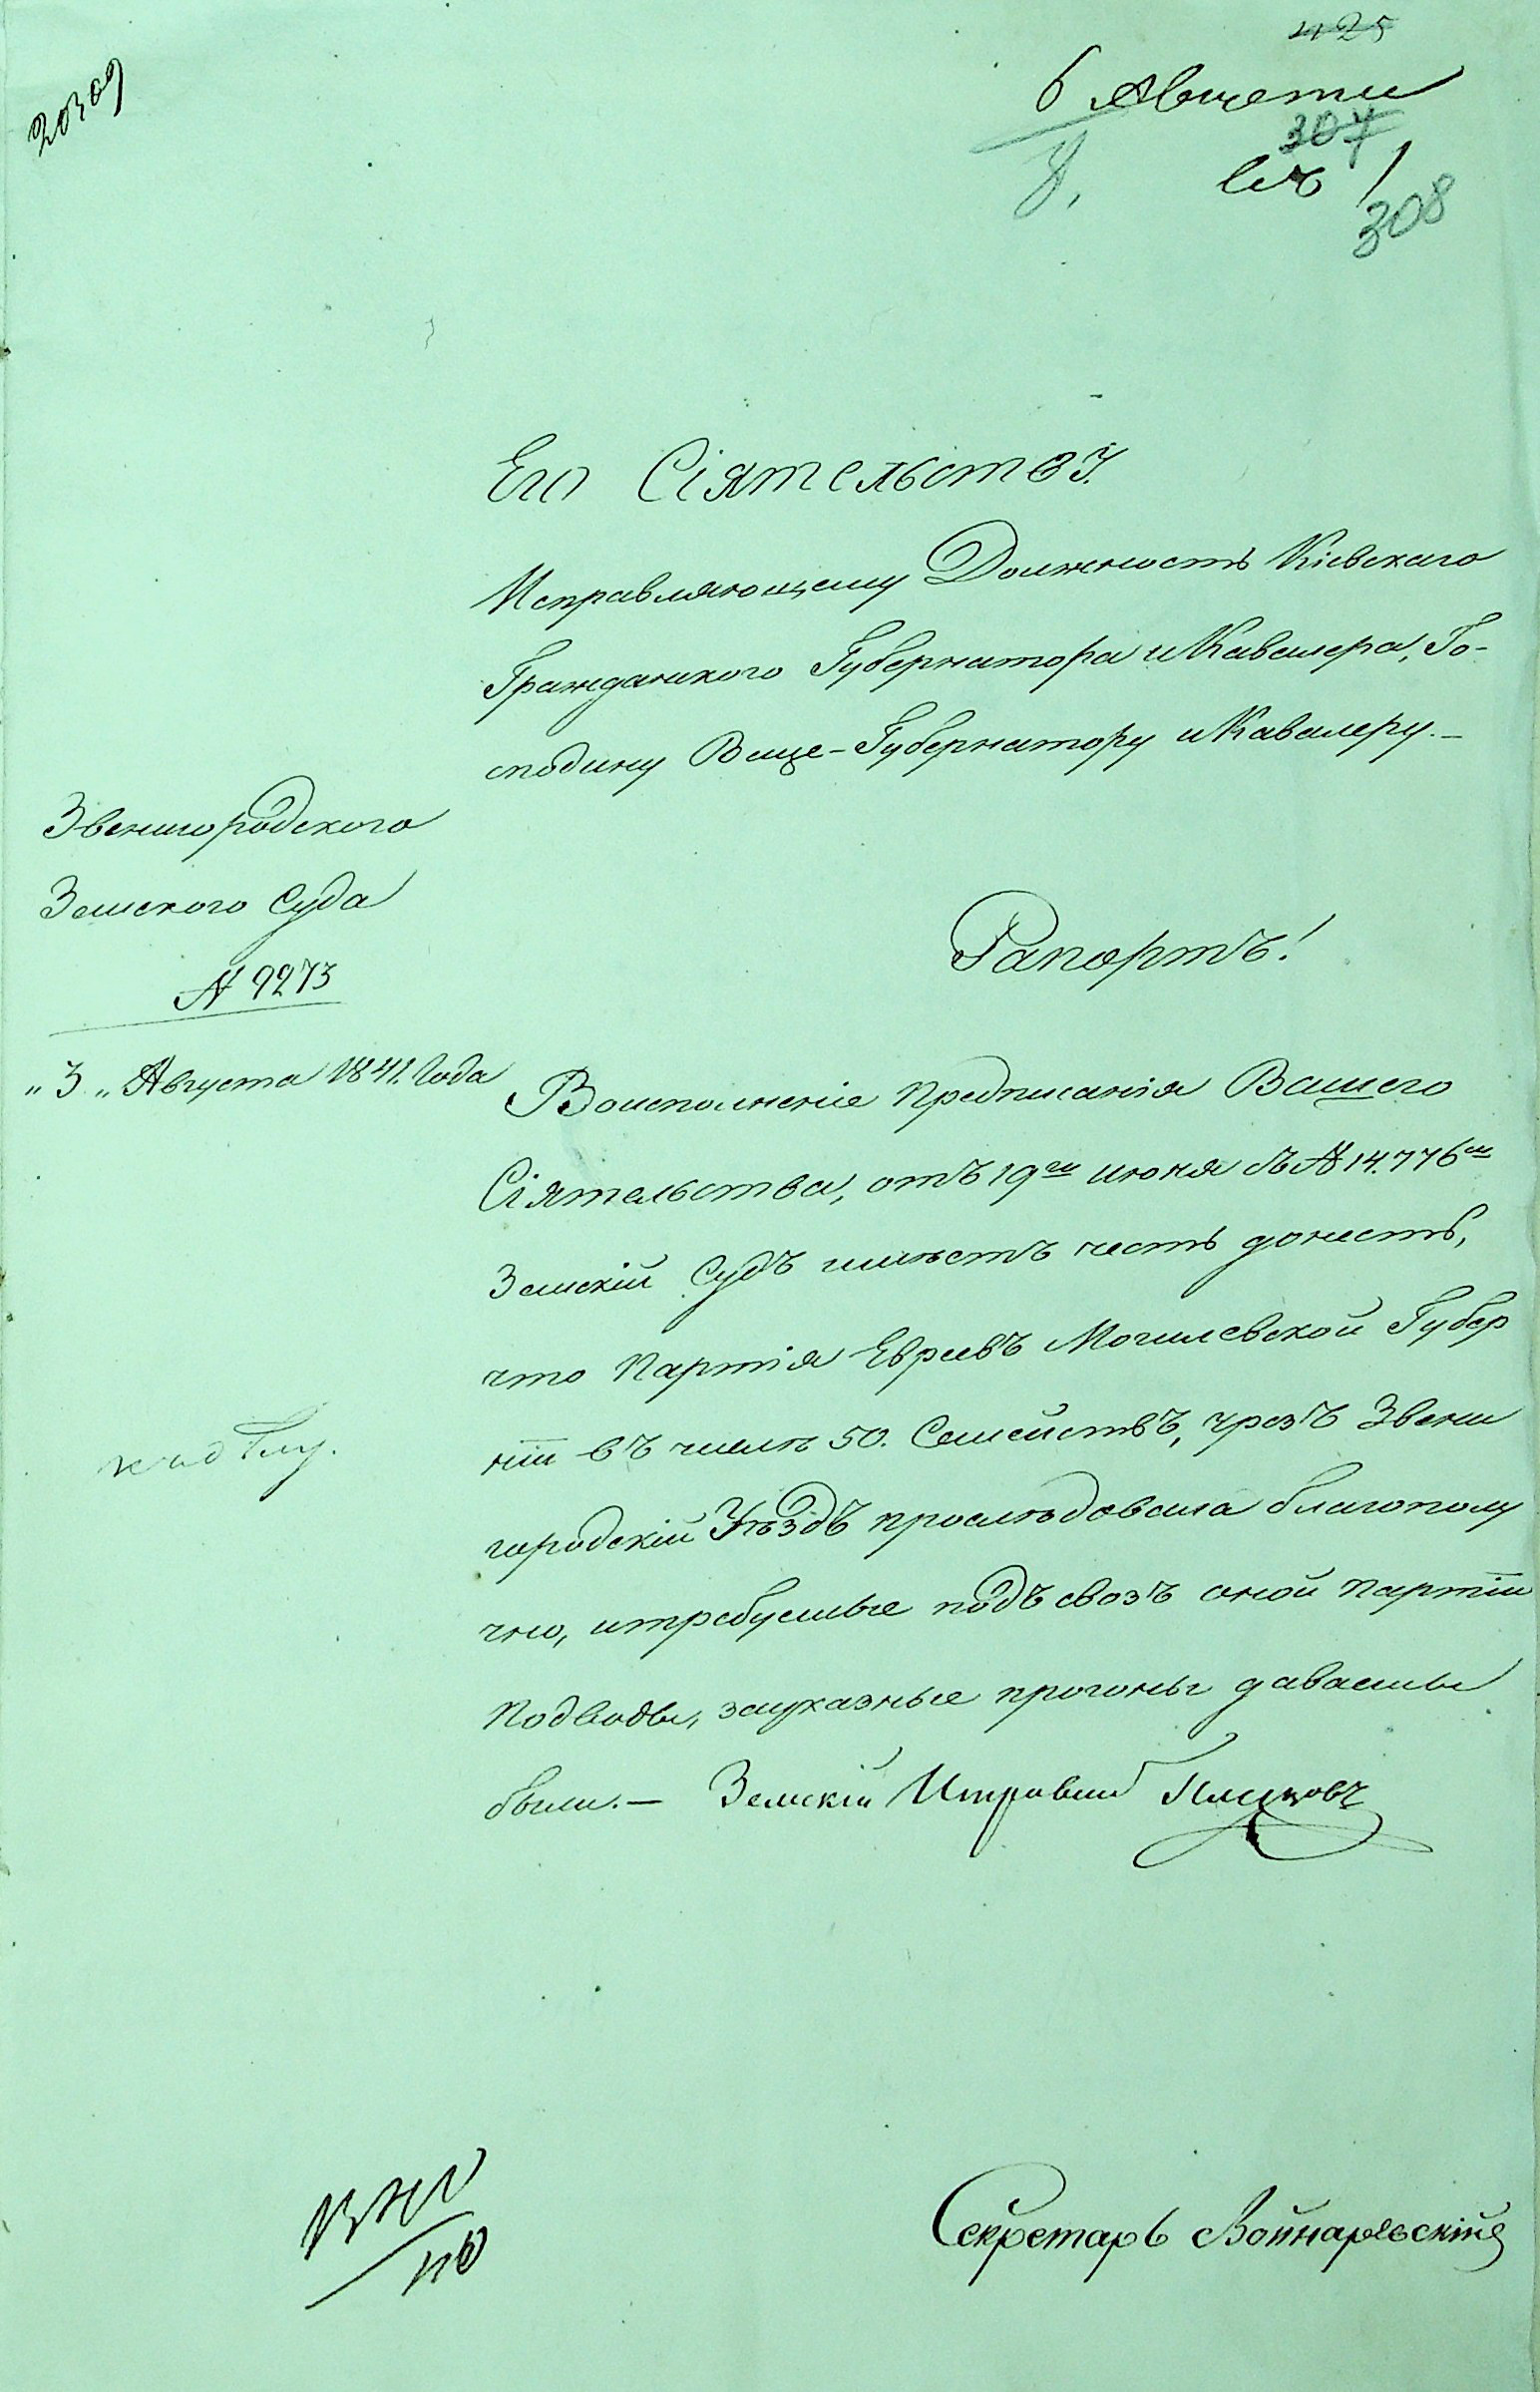 425
20309
6 Августа
307
308
Его Сіятельству.
Исправляющему Должность Кіевскаго
Гражданского Губернатора и Кавалера, Го-
сподину Вице-Губернатору и Кавалеру.-
Звенигородского
Земского Суда
№ 9273
"3" Августа 1841. Года
Рапортъ!
Воисполненіе предписанія Вашего
Сіятельства, отъ 19го июня за № 14.776м
Земскій Судъ имѣетъ честь донесть,
что Партія Евреевъ Могилевской Губер
ніи въ числѣ 50. Семействъ, чрезъ Звени
городскій Уѣздъ прослѣдовала благополу
чно, итребуемые подъ свозъ оной партіи
Подводы, зауказные прогоны даваемы
были.- Земскій Исправник
Секретарь Войнаровскій